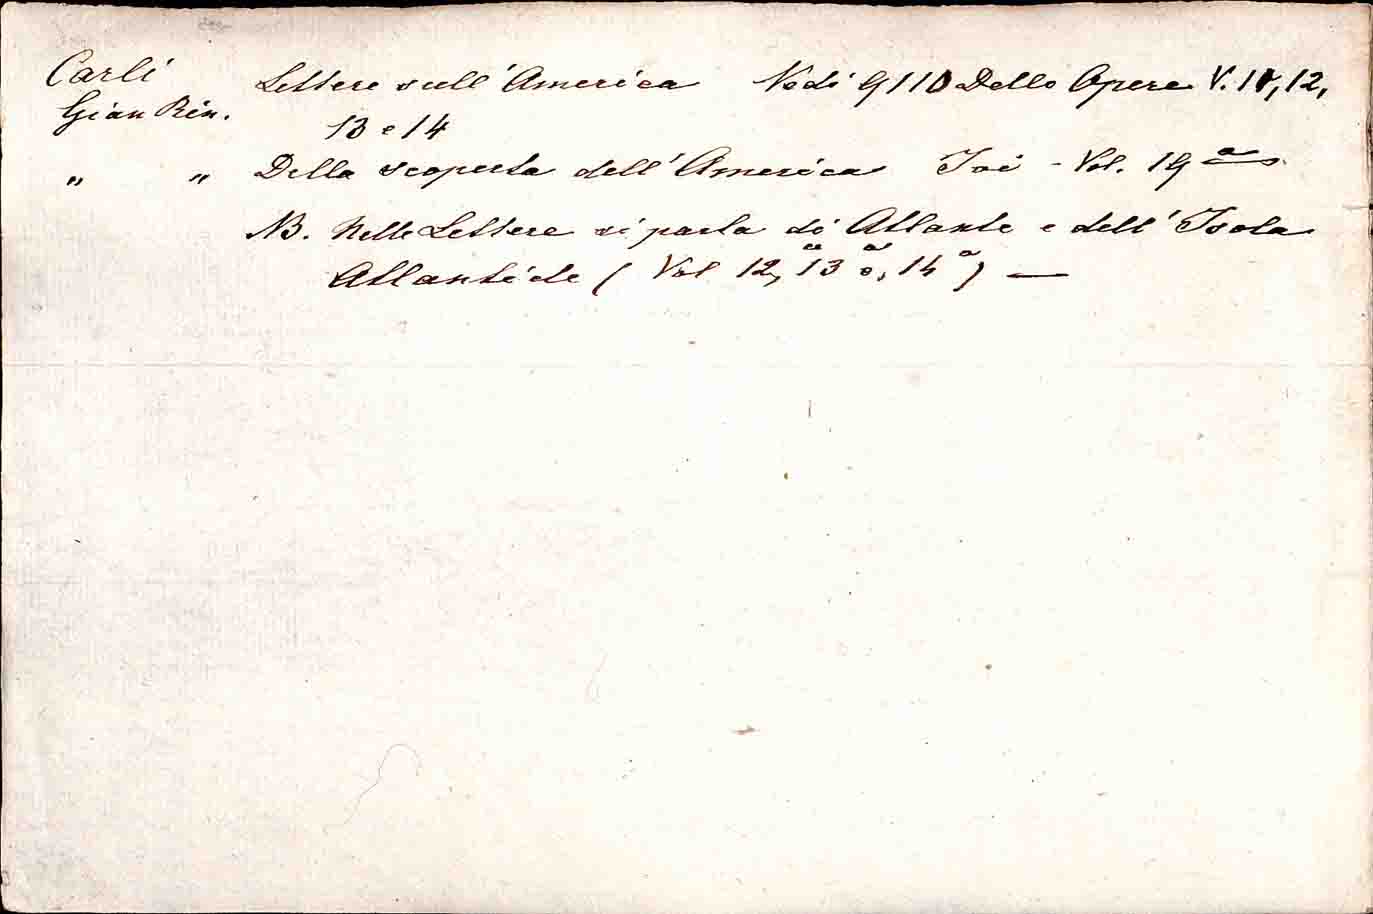 Carli Lettere sull'America Vedi 9110 Delle Opere V. 11, 12,
Gian Rin. 13 e 14
" " Della scoperta dell'America Ivi - Vol. 19º
NB. Nelle Lettere si parla di Atlante e dell'Isola
Atlantide ( Vol 12, 13º e, 14º ) —